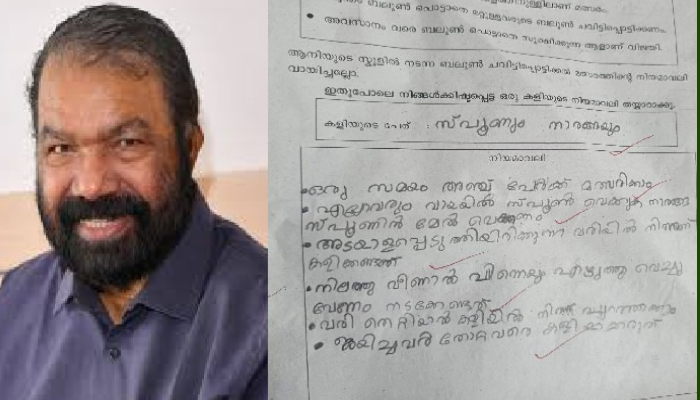 ബലൂൺ പൊട്ടാതെ മറ്റുള്ളവരുടെ ബലൂൺ ചവിട്ടിപ്പൊട്ടിക്കണം.
• അവസാനം വരെ ബലൂൺ പൊട്ടാതെ സൂക്ഷിക്കുന്ന ആളാണ് വിജയി.
ആനിയുടെ സ്കൂളിൽ നടന്ന ബലൂൺ ചവിട്ടിപ്പൊട്ടിക്കൽ മത്സരത്തിന്റെ നിയമാവലി
വായിച്ചല്ലോ.
ഇതുപോലെ നിങ്ങൾക്കിഷ്ടപ്പെട്ട ഒരു കളിയുടെ നിയമാവലി തയ്യാറാക്കൂ.
കളിയുടെ പേര് : സ്പൂണും നാരങ്ങയും
നിയമാവലി
• ഒരു സമയം അഞ്ച് പേർക്ക് മത്സരിക്കാം
• എല്ലാവരും വായയിൽ സ്പൂൺ വെക്കുക നാരങ്ങ
സ്പൂണിൻ മേൽ വെക്കണം
• അടയാളപ്പെടുത്തിയിരിക്കുന്ന വരിയിൽ നിന്നാണ്
കളിക്കേണ്ടത്
• നിലത്തു വീണാൽ പിന്നെയും എടുത്തു വെച്ചു
വേണം നടക്കേണ്ടത്
• വരി തെറ്റിയാൽ കളിയിൽ നിന്ന് പുറത്താകും
• ജയിച്ചവർ തോറ്റവരെ കളിയാക്കരുത്